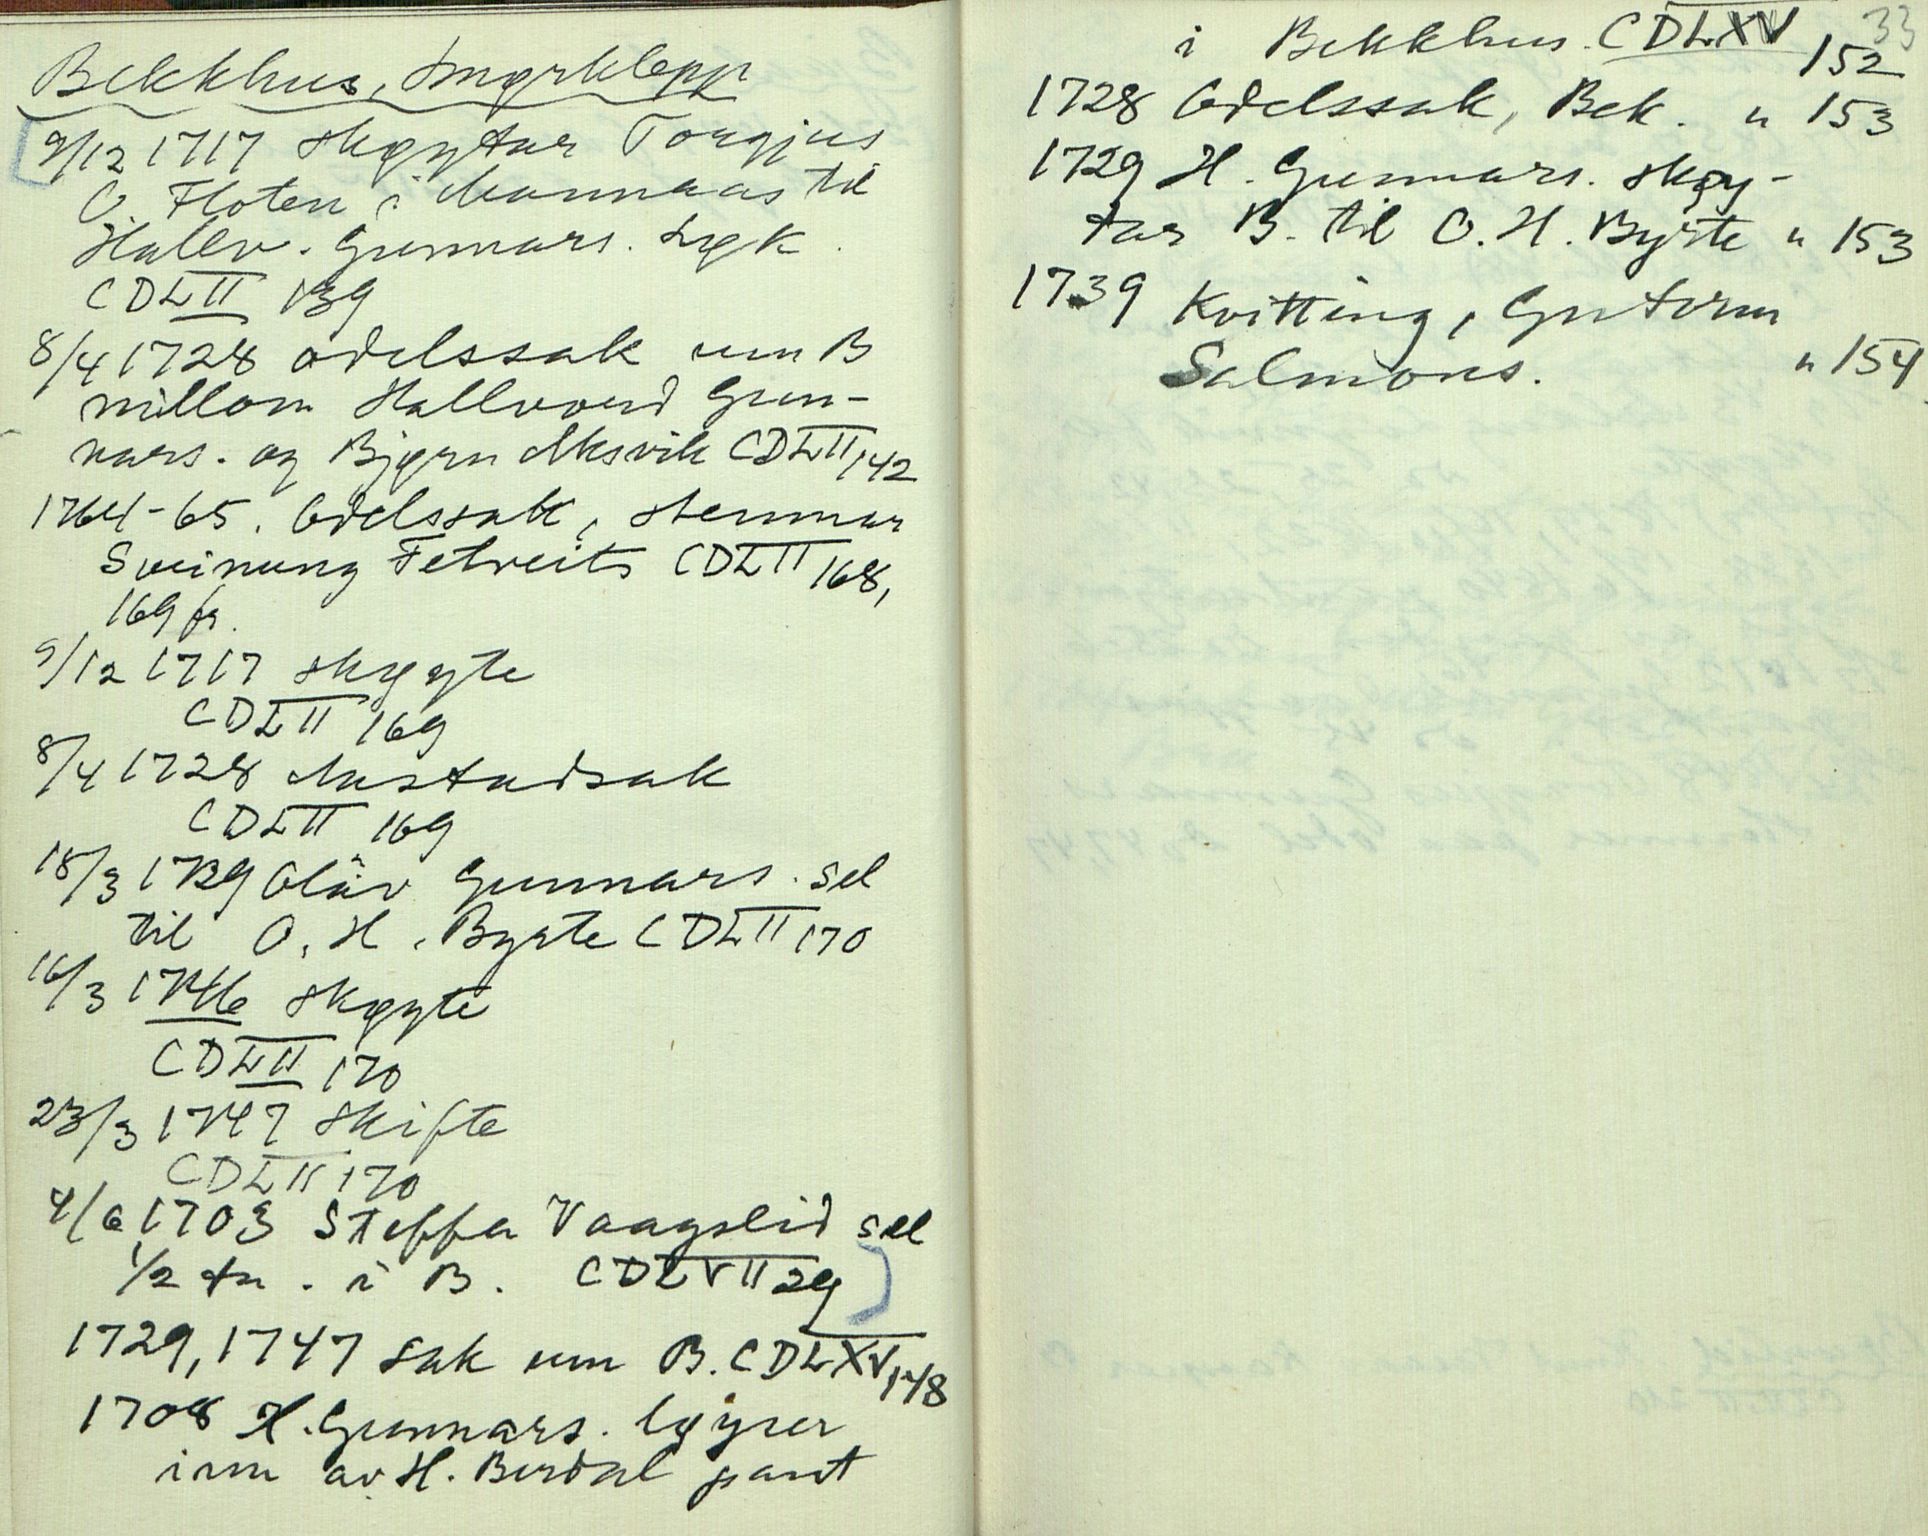 Bekkhus, Smørklepp
9/12 1717 skøytar Torgjus
O. Floten i Mannaas til
Hallv. Gunnars. Løk.
CDLII 139
8/4 1728 odelssak um B
millom Hallvord Gun-
nars. og Bjørn Aksvik CDLII 142
1764-65. Odelssak, stemnar
Sveinung Felveits CDLII 168,
169 fr.
9/12 1717 skøyte
CDLII 169
8/4 1728 Aastadsak
CDLII 169
18/3 1739 Olav Gunnars. sel
til O. H. Byrte CDLII 170
16/3 1746 skøyte
CDLII 170
23/3 1747 skifte
CDLII 170
4/6 1703 Steffa Vaagslid sel
1/2 tn. i B. CDLVII 29
1729, 1747 sak um B. CDLXV 148
1708 H. Gunnars. løyser
inn av H. Berdal pant
33
i Bekkhus. CDLXV 152
1728 Odelssak, Bek. " 153
1729 H. Gunnars. skøy-
tar B. til O. H. Byrte " 153
1739 Kvitting, Guttorm
Salmons. " 154